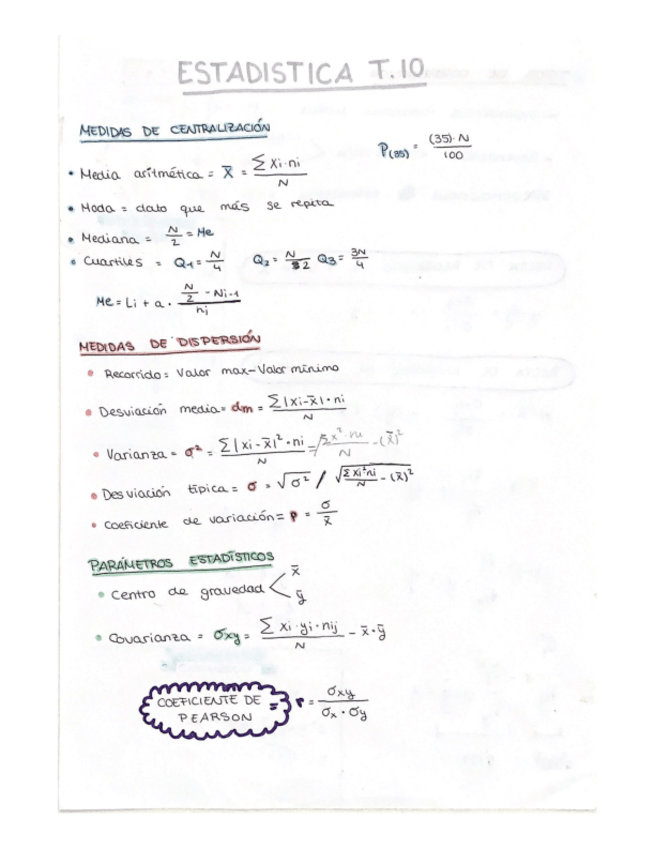 ESTADISTICA T.10
MEDIDAS DE CENTRALIZACIÓN
P(35) = (35)·N / 100
• Media aritmética = x̄ = ∑ xi·ni / N
• Moda = dato que más se repita
• Mediana = N/2 = Me
• Cuartiles = Q1 = N/4 Q2 = N/2 Q3 = 3N/4
Me = Li + a · (N/2 - Ni-1) / ni
MEDIDAS DE DISPERSIÓN
• Recorrido = Valor max - Valor mínimo
• Desviación media = dm = ∑|xi-x̄|·ni / N
• Varianza = σ² = ∑|xi-x̄|²·ni / N = ∑x²·ni / N - (x̄)²
• Desviación típica = σ = √σ² / √(∑xi²ni / N - (x̄)²)
• Coeficiente de variación = p = σ / x̄
PARÁMETROS ESTADÍSTICOS
• Centro de gravedad < x̄ ȳ
• Covarianza = σxy = ∑ xi·yi·nij / N - x̄·ȳ
COEFICIENTE DE PEARSON = r = σxy / σx·σy